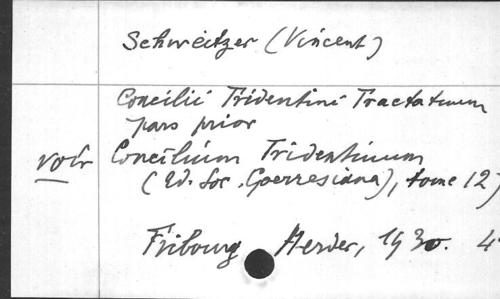 Schweitzer (Vincent)
Concilii Tridentini Tractatuum
pars prior
voir Concilium Tridentinum
(Ed. Soc. Goerresiana), tome 12)
Fribourg Herder, 1930. 4